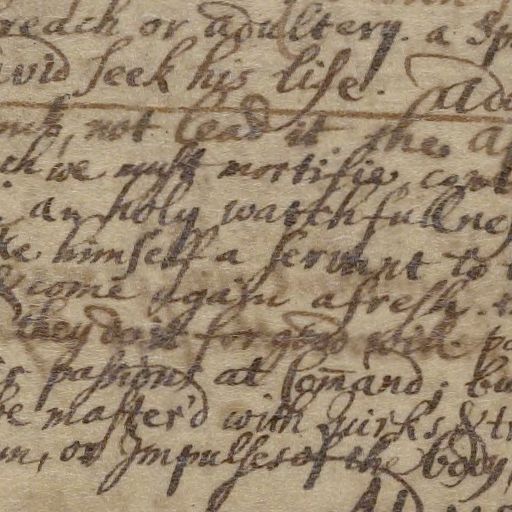 reach or adultery. a Sp
avid seek his life. Ado
not lead it. she
ch we must mortifie, com
: an holy watchfullnes
ke himself a servant to t
come again afresh. t
they do it for good with pa
is passions at com̄and; bu
be master'd with quirks & tr
un, or Impulses of the body,